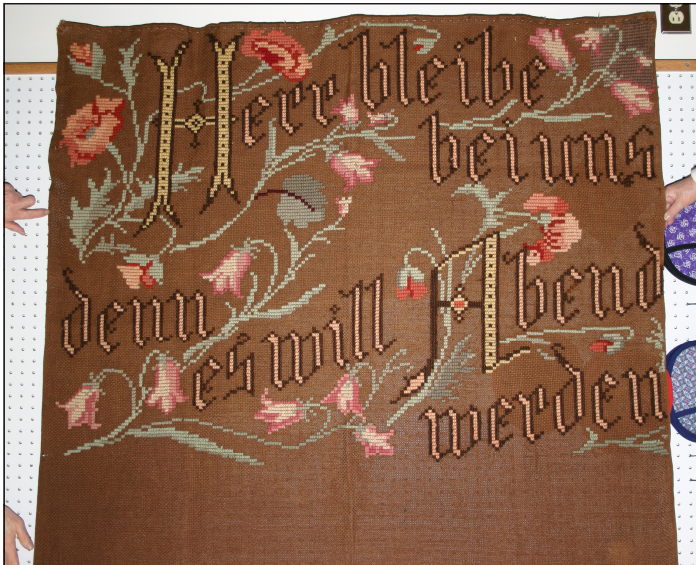 Herr bleibe
bei uns
denn
es will Abend
werden